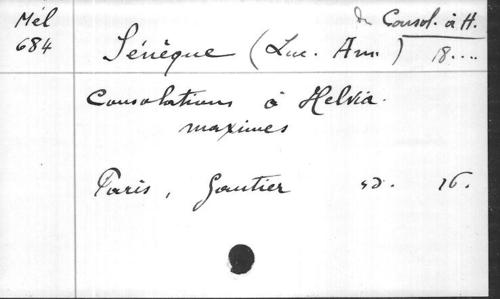 Mél
684
de Consol. à H.
18....
Sénèque (Luc. Ann.)
Consolations à Helvia.
maximes
Paris, Gautier sd. 16.